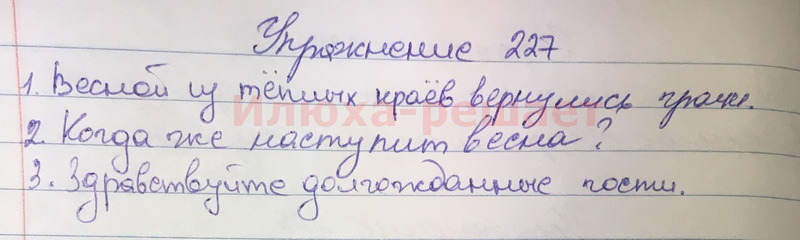 Упражнение 227
1. Весной из тёплых краёв вернулись грачи.
Илюха-решает
2. Когда же наступит весна?
3. Здравствуйте долгожданные гости.